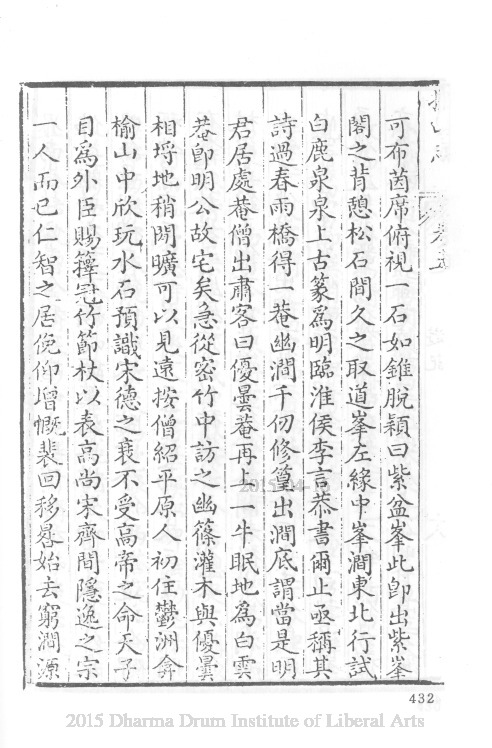 可布茵席俯視一石如錐脫穎曰紫盆峯此卽出紫峯
閣之背憩松石間久之取道峯左緣中峯澗東北行試
白鹿泉泉上古篆爲明臨淮侯李言恭書爾止亟稱其
詩過春雨橋得一菴幽澗千仞修篁出澗底謂當是明
君居處菴僧出肅客曰優曇菴再上一牛眠地為白雲
菴卽明公故宅矣急從密竹中訪之幽篠灌木與優曇
相埒地稍閒曠可以見遠按僧紹平原人初住鬱洲弇
榆山中欣玩水石預識宋德之衰不受高帝之命天子
目爲外臣賜籜冠竹節杖以表高尚宋齊間隱逸之宗
一人而已仁智之居俛仰增慨裴回移晷始去窮澗源
432
2015 Dharma Drum Institute of Liberal Arts